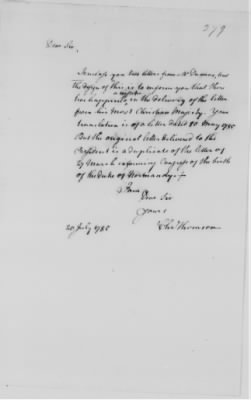 279
Dear Sir
I enclose you this letter from Mr Dumas, but
the design of this is to inform you that there
has happened a mistake in the delivery of the letter
from his Most Christian Majesty. Your
translation is of a letter dated 10 May 1785
But the original letter delivered to the
President is a duplicate of the letter of
27 March informing Congress of the birth
of the Duke of Normandy. +
I am
Dear Sir
Yours
Chas Thomson
20 July 1785